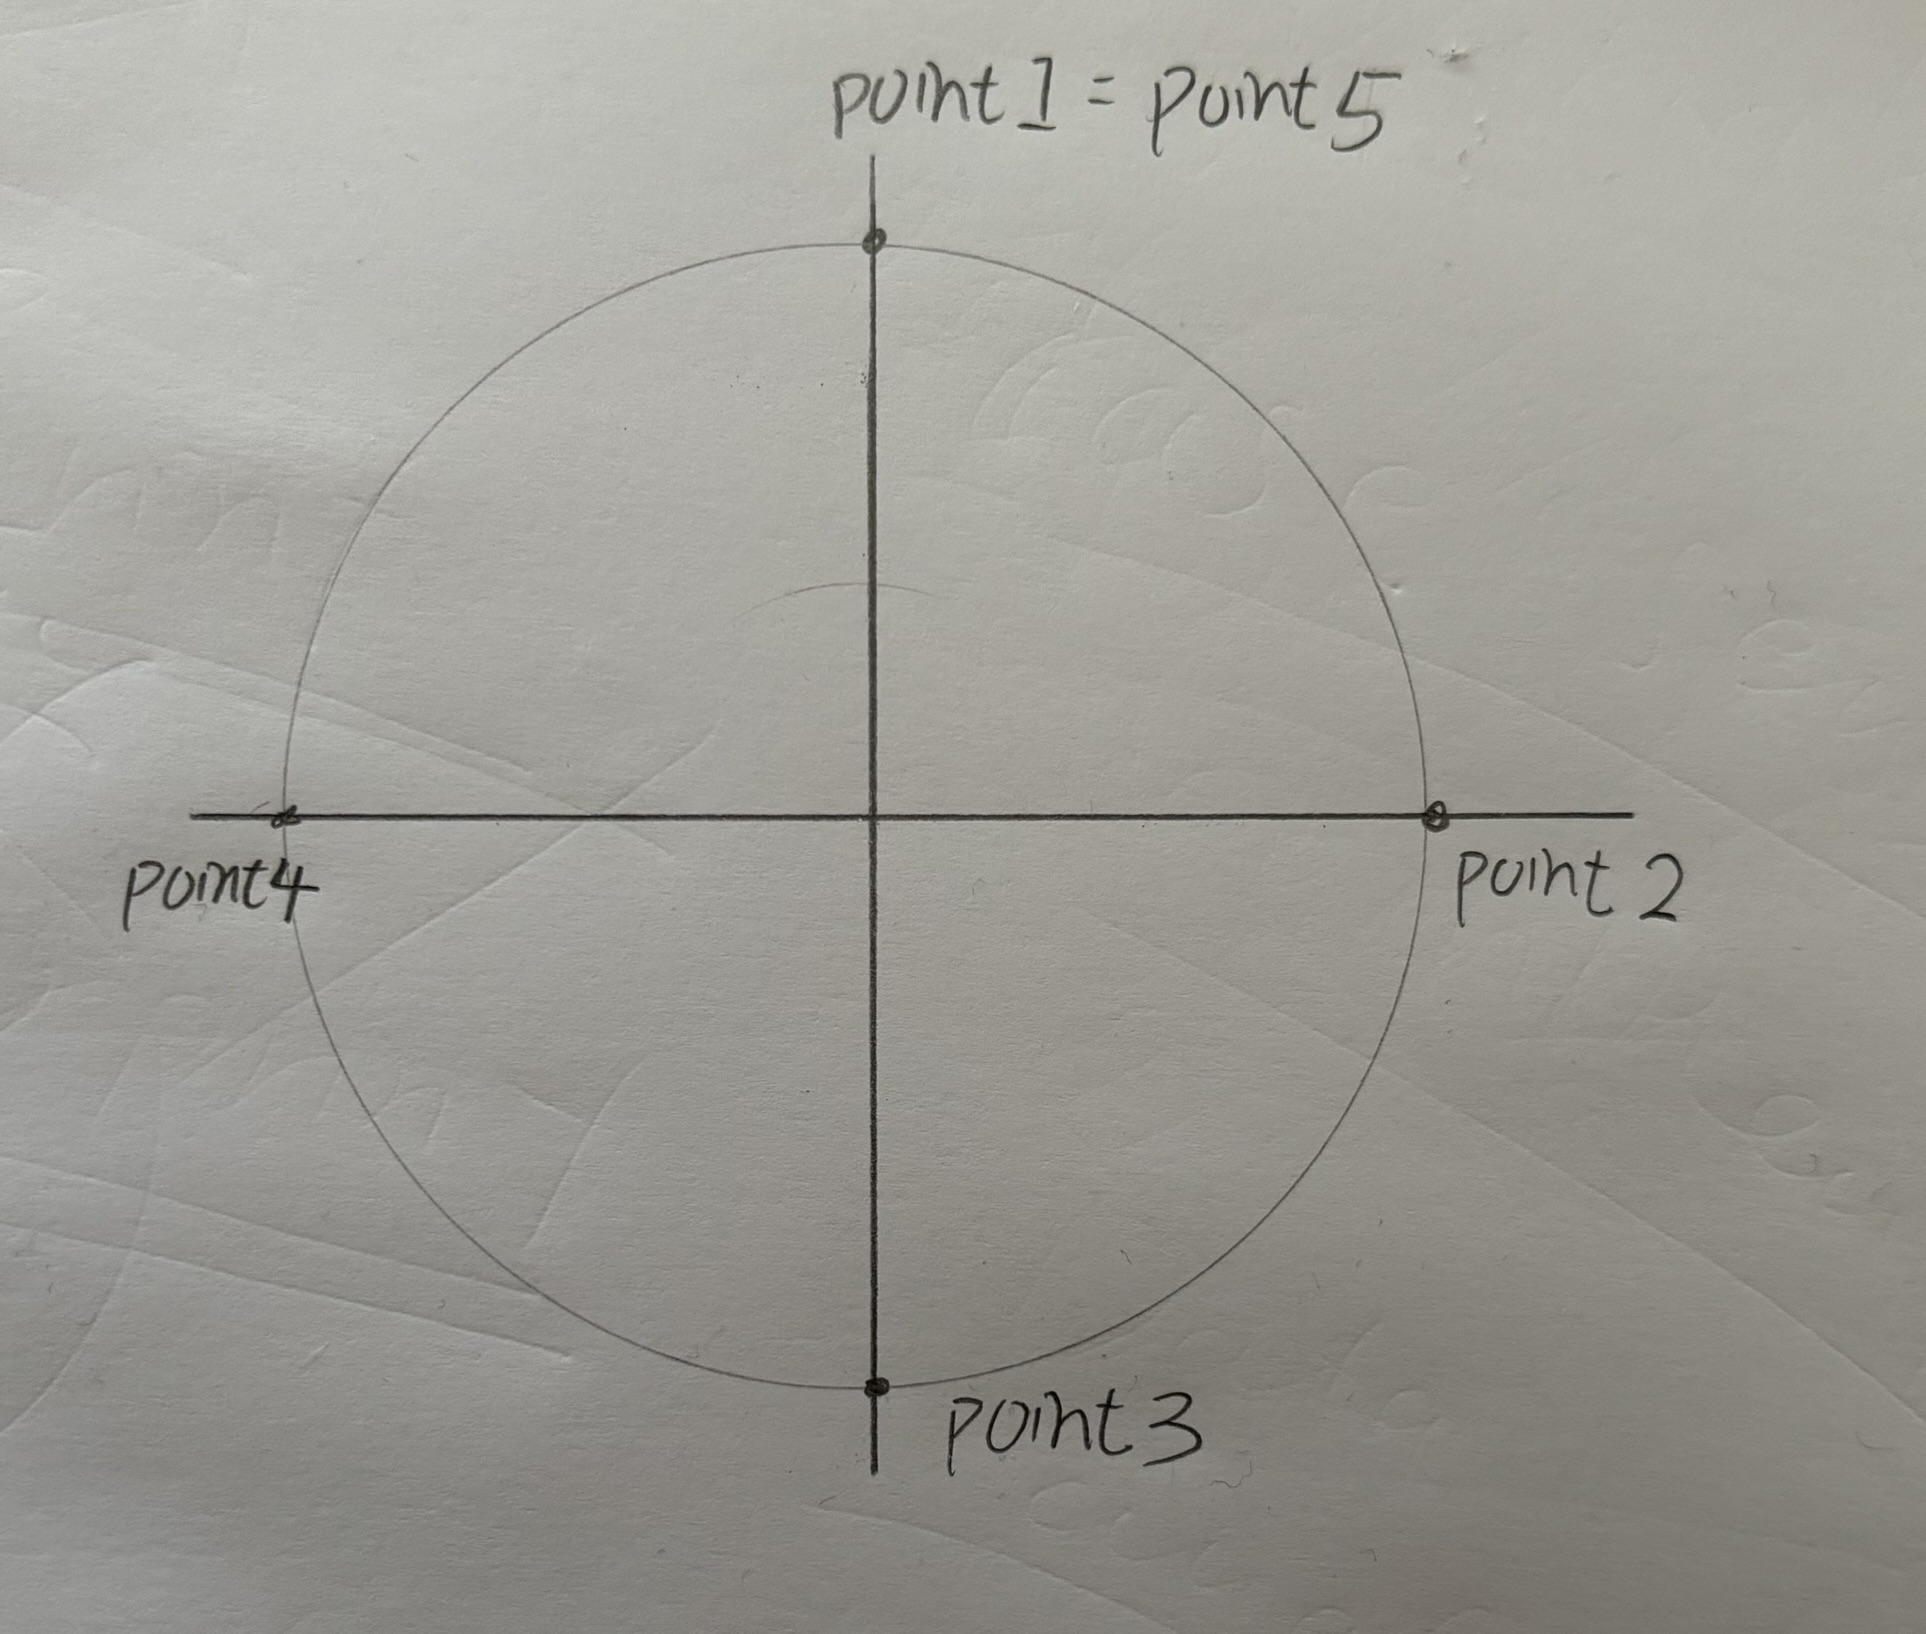 point 1 = point 5
point 4
point 2
point 3